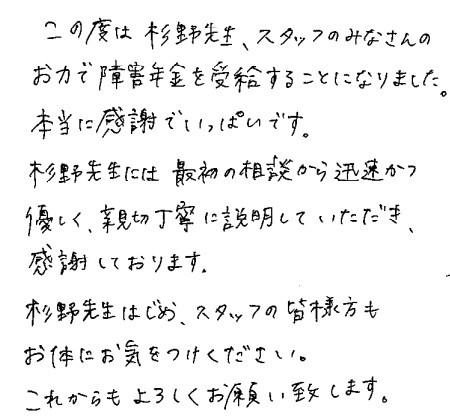 この度は杉野先生、スタッフのみなさんの
お力で障害年金を受給することになりました。
本当に感謝でいっぱいです。
杉野先生には最初の相談から迅速かつ
優しく、親切丁寧に説明していただき、
感謝しております。
杉野先生はじめ、スタッフの皆様方も
お体にお気をつけください。
これからもよろしくお願い致します。